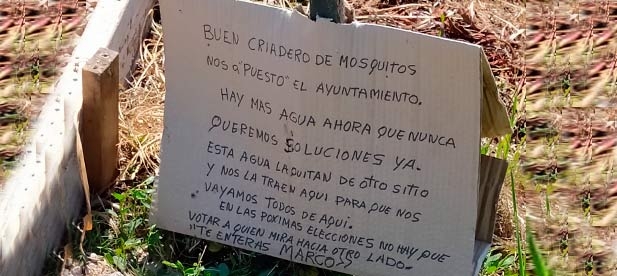 BUEN CRIADERO DE MOSQUITOS
NOS a "PUESTO" EL AYUNTAMIENTO.
HAY MAS AGUA AHORA QUE NUNCA
QUEREMOS SOLUCIONES YA.
ESTA AGUA LA QUITAN DE OTRO SITIO
Y NOS LA TRAEN AQUI PARA QUE NOS
VAYAMOS TODOS DE AQUI.
EN LAS POXIMAS ELECCIONES NO HAY QUE
VOTAR A QUIEN MIRA HACIA OTRO LADO.
"TE ENTERAS MARCO>>